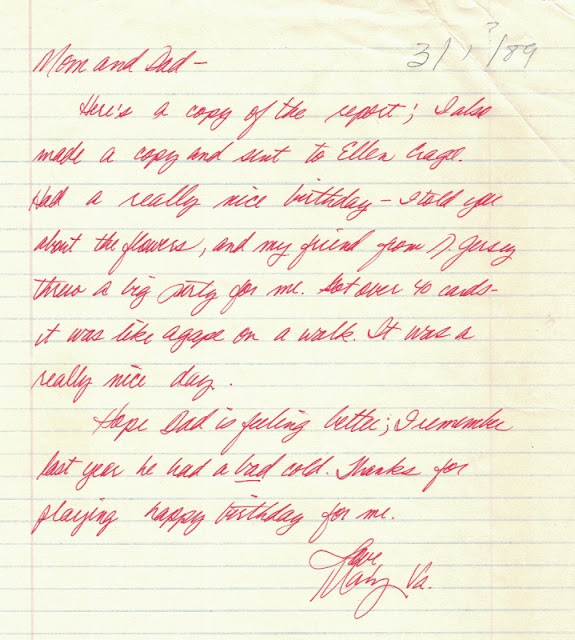 3/1?/89
Mom and Dad —
Here's a copy of the report; I also
made a copy and sent to Ellen Crage.
Had a really nice birthday — I told you
about the flowers, and my friend from N. Jersey
threw a big party for me. Got over 40 cards -
it was like agape on a walk. It was a
really nice day.
Hope Dad is feeling better; I remember
last year he had a bad cold. Thanks for
playing happy birthday for me.
Love
Mary Va.